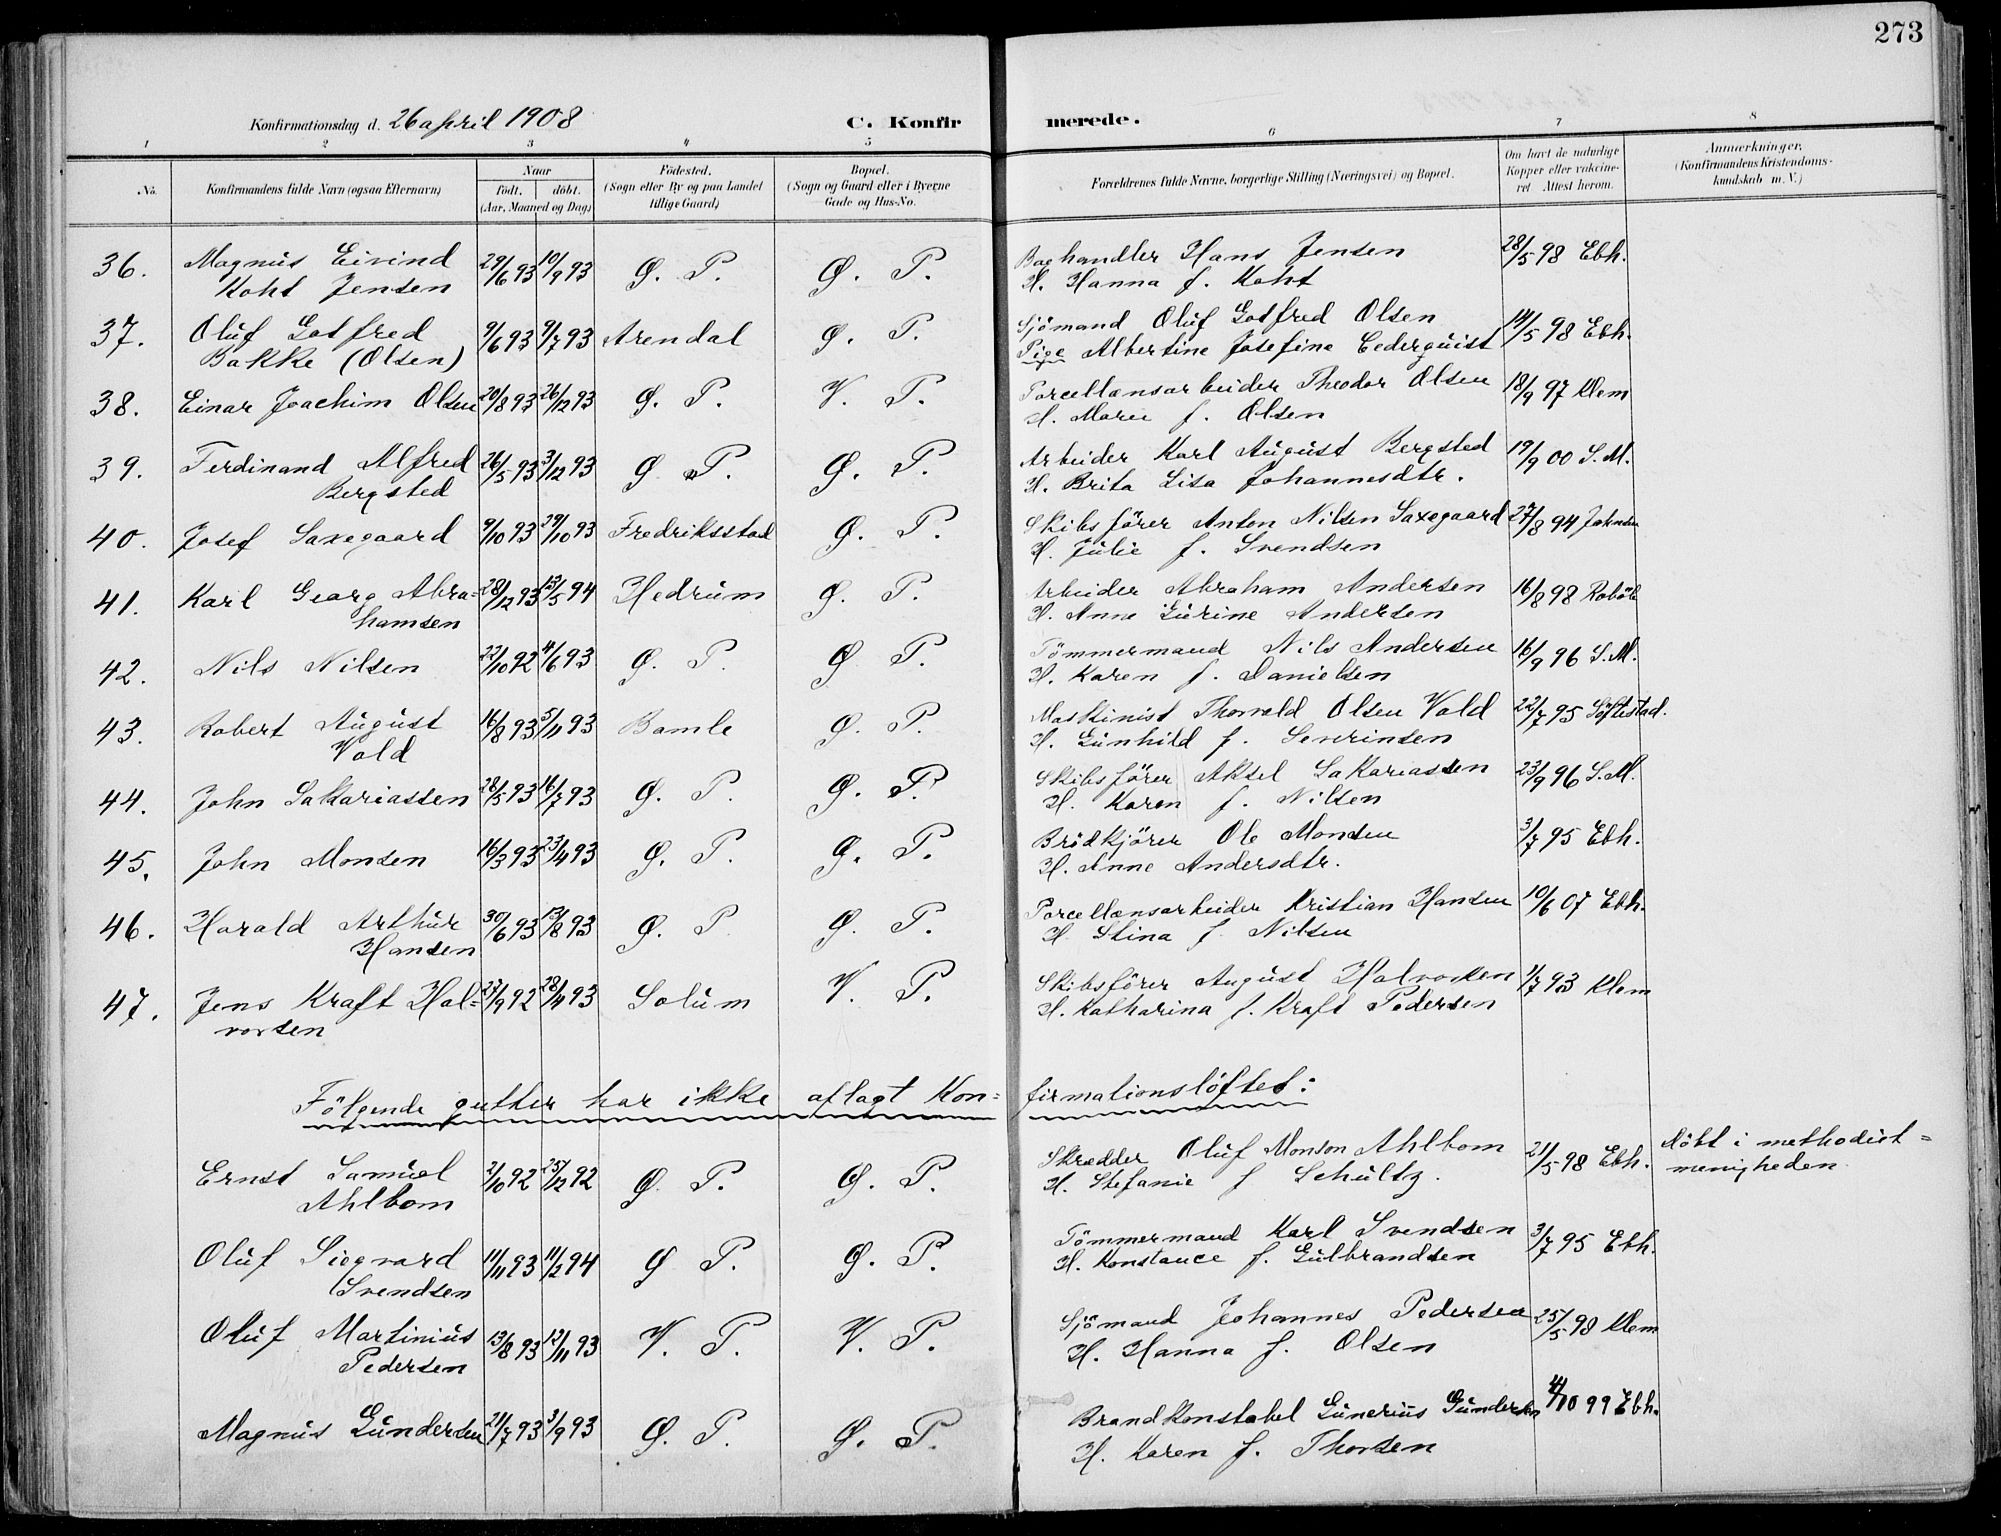 273
Konfirmationsdag d. 26 april 1908 C. Konfirmerede.
1 2 3 4 5 6 7 8
No. Konfirmandens fulde Navn (ogsaa Efternavn) Naar født. døbt. (Aar, Maaned og Dag) Fødested. (Sogn eller By og paa Landet tillige Gaard) Bopæl. (Sogn og Gaard eller i Byerne Gade og Hus-No. Forældrenes fulde Navne, borgerlige Stilling (Næringsvei) og Bopæl. Om havt de naturlige Kopper eller vaccineret Attest herom. Anmærkninger. (Konfirmandens Kristendomskundskab m. V.)
36. Magnus Eivind 29/6 93 10/9 93 Ø. P. Ø. P. Boghandler Hans Jensen 28/5 98 Ebh.
Koht Jensen H. Hanna f. Koht
37. Oluf Gotfred 9/6 93 9/7 93 Arendal Ø. P. Sjömand Oluf Gotfred Olsen 14/5 98 Ebh.
Bakke (Olsen) Pige Albertine Josefine Cederquist
38. Einar Joachim Olsen 20/8 93 26/12 93 Ø. P. V. P. Porcellænsarbeider Theodor Olsen 18/9 97 Klem
H. Maren f. Olsen
39. Ferdinand Alfred 26/5 93 3/12 93 Ø P. Ø. P. Arbeider Karl August Bergsted 19/9 00 S. M.
Bergsted H. Brita Lisa Johannesdtr.
40. Josef Saxegaard 9/10 93 29/10 93 Fredriksstad Ø. P. Skibsförer Anton Nilsen Saxegaard 27/8 94 Johnsen
H. Julie f. Svendsen
41. Karl Georg Abra= 28/12 93 13/5 94 Hedrum Ø. P. Arbeider Abraham Andersen 16/8 98
hamsen H. Anne Gurine Andersen
42. Nils Nilsen 22/10 92 4/6 93 Ø. P. Ø P. Tömmermand Nils Andersen 16/9 96 S. M.
H. Karen f. Danielsen
43. Robert August 16/8 93 5/11 93 Bamle Ø. P. Maskinist Thorvald Olsen Vold 22/7 95 Söftestad.
Vold H. Gunhild f. Severinsen
44. John Sakariassen 28/5 93 16/7 93 Ø. P. Ø. P. Skibsförer Aksel Sakariassen 23/9 96 S. M.
H. Karen f. Nilsen
45. John Monsen 16/3 93 23/4 93 Ø. P. Ø. P. Brödkjörer Ole Monsen 3/7 95 Ebh.
H. Anne Andersdtr.
46. Harald Arthur 30/6 93 13/8 93 Ø. P. Ø. P. Porcellænsarbeider Kristian Hansen 10/6 07 Ebh.
Hansen H. Stina f. Nilsen
47. Jens Kraft Hal= 27/9 92 28/4 93 Solum V. P. Skibsförer August Halvorsen 1/7 93 Klem
vorsen H. Katharina f. Kraft Pedersen
Fölgende gutter har ikke aflagt Kon= firmationslöftet:
Ernst Samuel 2/10 92 25/12 92 Ø. P. Ø. P. Skrædder Oluf Monson Ahlbom 21/5 98 Ebh. Döbt i methodist=
Ahlbom H. Stefanie f Schultz. menigheden
Oluf Siegvard 11/11 93 11/2 94 Ø P. Ø. P. Tömmermand Karl Svendsen 3/7 95 Ebh.
Svendsen H. Konstance f. Gulbrandsen
Oluf Martinius 13/8 93 12/11 93 V. P. V. P. Sjömand Johannes Pedersen 25/5 98 Klem
Pedersen H. Hanna f. Olsen
Magnus Gundersen 21/7 93 3/9 93 Ø. P. Ø. P. Brandkonstabel Gunerius Gundersen 4/10 99 Ebh.
H. Karen f. Thorsen